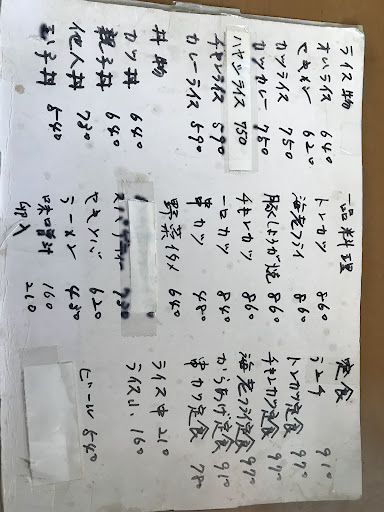 ライス物
オムライス 640
ヤキメシ 620
カツライス 750
カツカレー 750
ハヤシライス 750
チキンライス 590
カレーライス 590
丼物
カツ丼 640
親子丼 640
他人丼 730
玉子丼 540
一品料理
トンカツ 860
海老フライ 860
豚しょうが焼 860
チキンカツ 860
一口カツ 840
串カツ 480
野菜イタメ 640
ヤキソバ 620
ラーメン 430
味噌汁 160
卵入 210
定食
ランチ 910
トンカツ定食 970
チキンカツ定食 970
海老フライ定食 970
からあげ定食 910
串カツ定食 780
ライス中 210
ライス小 160
ビール 540